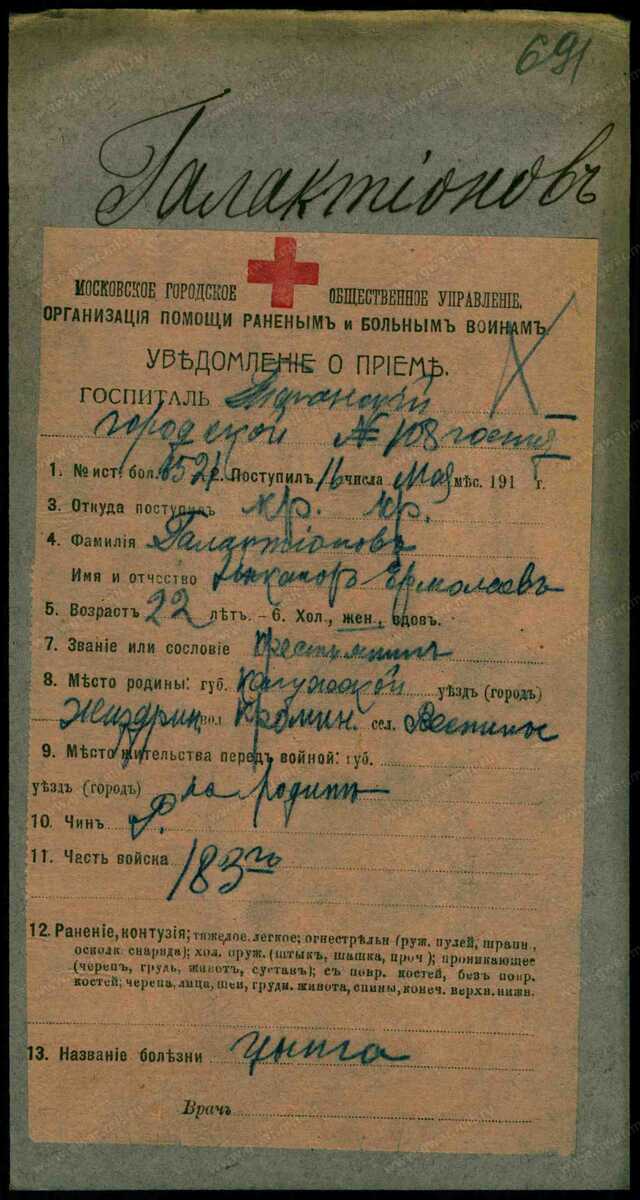 691
Галактіоновъ
МОСКОВСКОЕ ГОРОДСКОЕ ОБЩЕСТВЕННОЕ УПРАВЛЕНІЕ.
ОРГАНИЗАЦІЯ ПОМОЩИ РАНЕНЫМЪ и БОЛЬНЫМЪ ВОИНАМЪ.
УВѢДОМЛЕНІЕ О ПРІЕМѢ.
ГОСПИТАЛЬ
городской № 108
1. № ист. бол. Поступил 16 числа Мая мѣс. 191 г.
3. Откуда поступилъ
4. Фамилія Галактіоновъ
Имя и отчество Никаноръ Ермолаевъ
5. Возрастъ 22 лѣтъ. - 6. Хол., жен., вдов.
7. Званіе или сословіе крестьянинъ
8. Мѣсто родины: губ. Калужской уѣздъ (городъ)
Жиздрин. вол. сел.
9. Мѣсто жительства передъ войной: губ.
уѣздъ (городъ) на родинѣ
10. Чинъ Р.
11. Часть войска 183го
12. Раненіе, контузія; тяжелое, легкое; огнестрѣльн (руж. пулей, шрапн.,
осколк. снаряда); хол. оруж. (штыкъ, шашка, проч.); проникающее
(черепъ, грудь, животъ, суставъ); съ повр. костей, безъ повр.
костей; черепа, лица, шеи, груди, живота, спины, конеч. верхн. нижн.
13. Названіе болѣзни Цынга
Врачъ